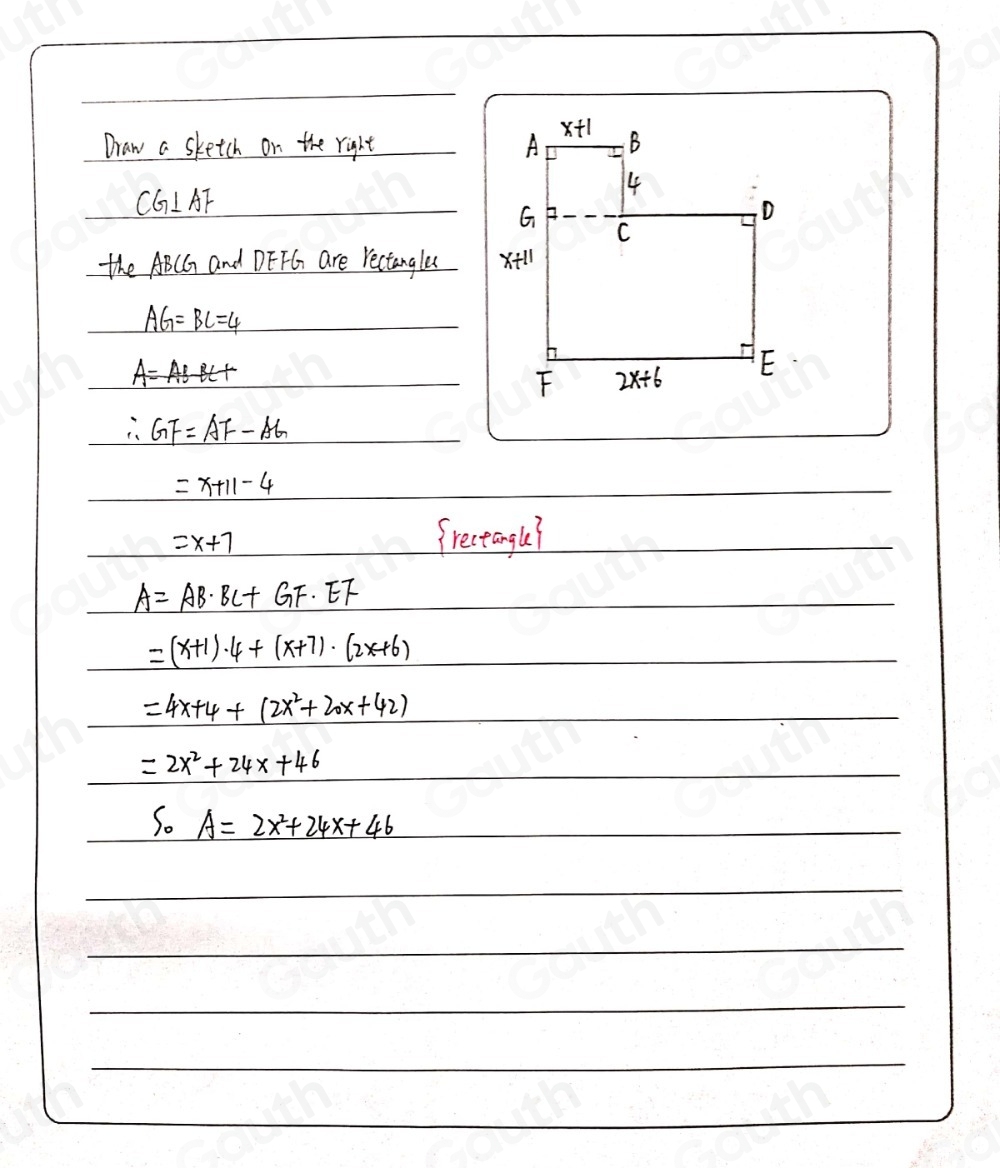 Draw a sketch on the right
CG⊥AF
the ABCG and DEFG are rectangles
AG=BC=4
A=AB·BC+
∴ GF=AF-AG
=x+11-4
=x+7
{rectangle}
A=AB·BC+GF·EF
=(x+1)·4+(x+7)·(2x+6)
=4x+4+(2x²+20x+42)
=2x²+24x+46
So A=2x²+24x+46
x+1
A B
4
G D
C
x+11
E
F 2x+6
Gauth